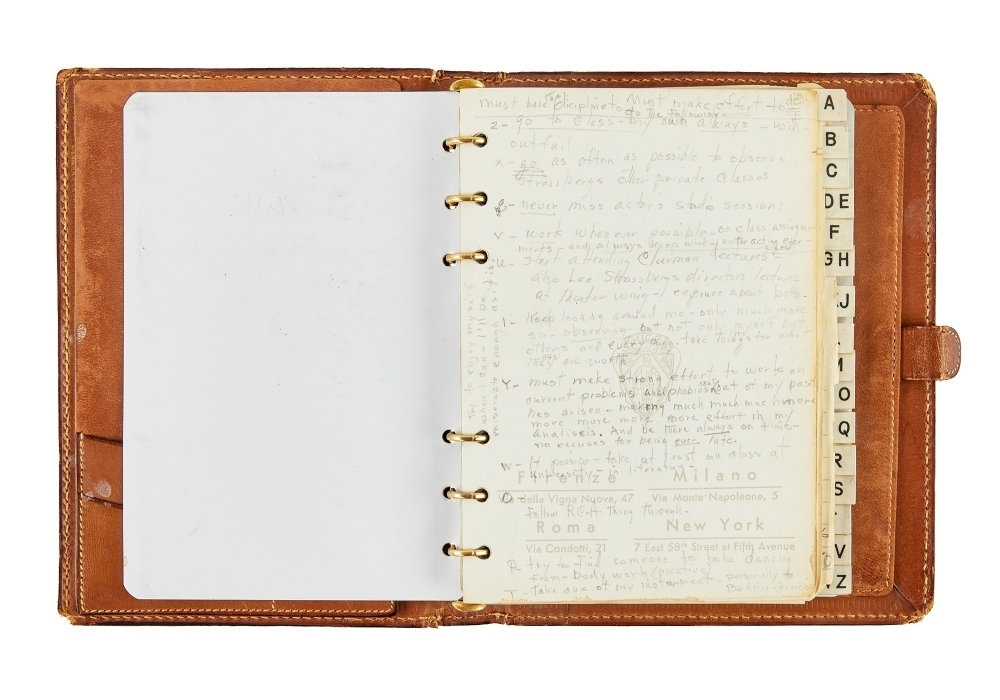 must have the discipline to do the following -
must make effort to
z - go to class - my own always - with-
out fail
x - go as often as possible to observe
Strassbergs other private classes
g - never miss actor's studio sessions
v - work whenever possible - on class assign-
ments - and always keep working on the acting exer-
cises
u - start attending Clurman lectures -
also Lee Strassbergs directors lectures
at theater wing - enquire about both -
l - keep looking around me - only much more
so - observing - but not only myself but
others and everything - take things for what
they are worth
y - must make strong effort to work on
current problems and phobias that out of my past
has arisen - making much much much more
more more more more effort in my
analisis. And be there always on time -
no excuses for being ever late.
w - if possible - take at least on class at
university - in literature -
o - follow RCA thing through -
p - try to find someone to take dancing
from - body work (creative)
t - take care of my instrument - personally &
try to enjoy myself
when I can - I'll be
miserable enough as it is.
Firenze
Milano
Via della Vigna Nuova, 47
Via Monte Napoleone, 5
Roma
New York
Via Condotti, 21
7 East 58th Street at Fifth Avenue
A
B
C
DE
F
GH
IJ
M
O
Q
R
S
V
Z